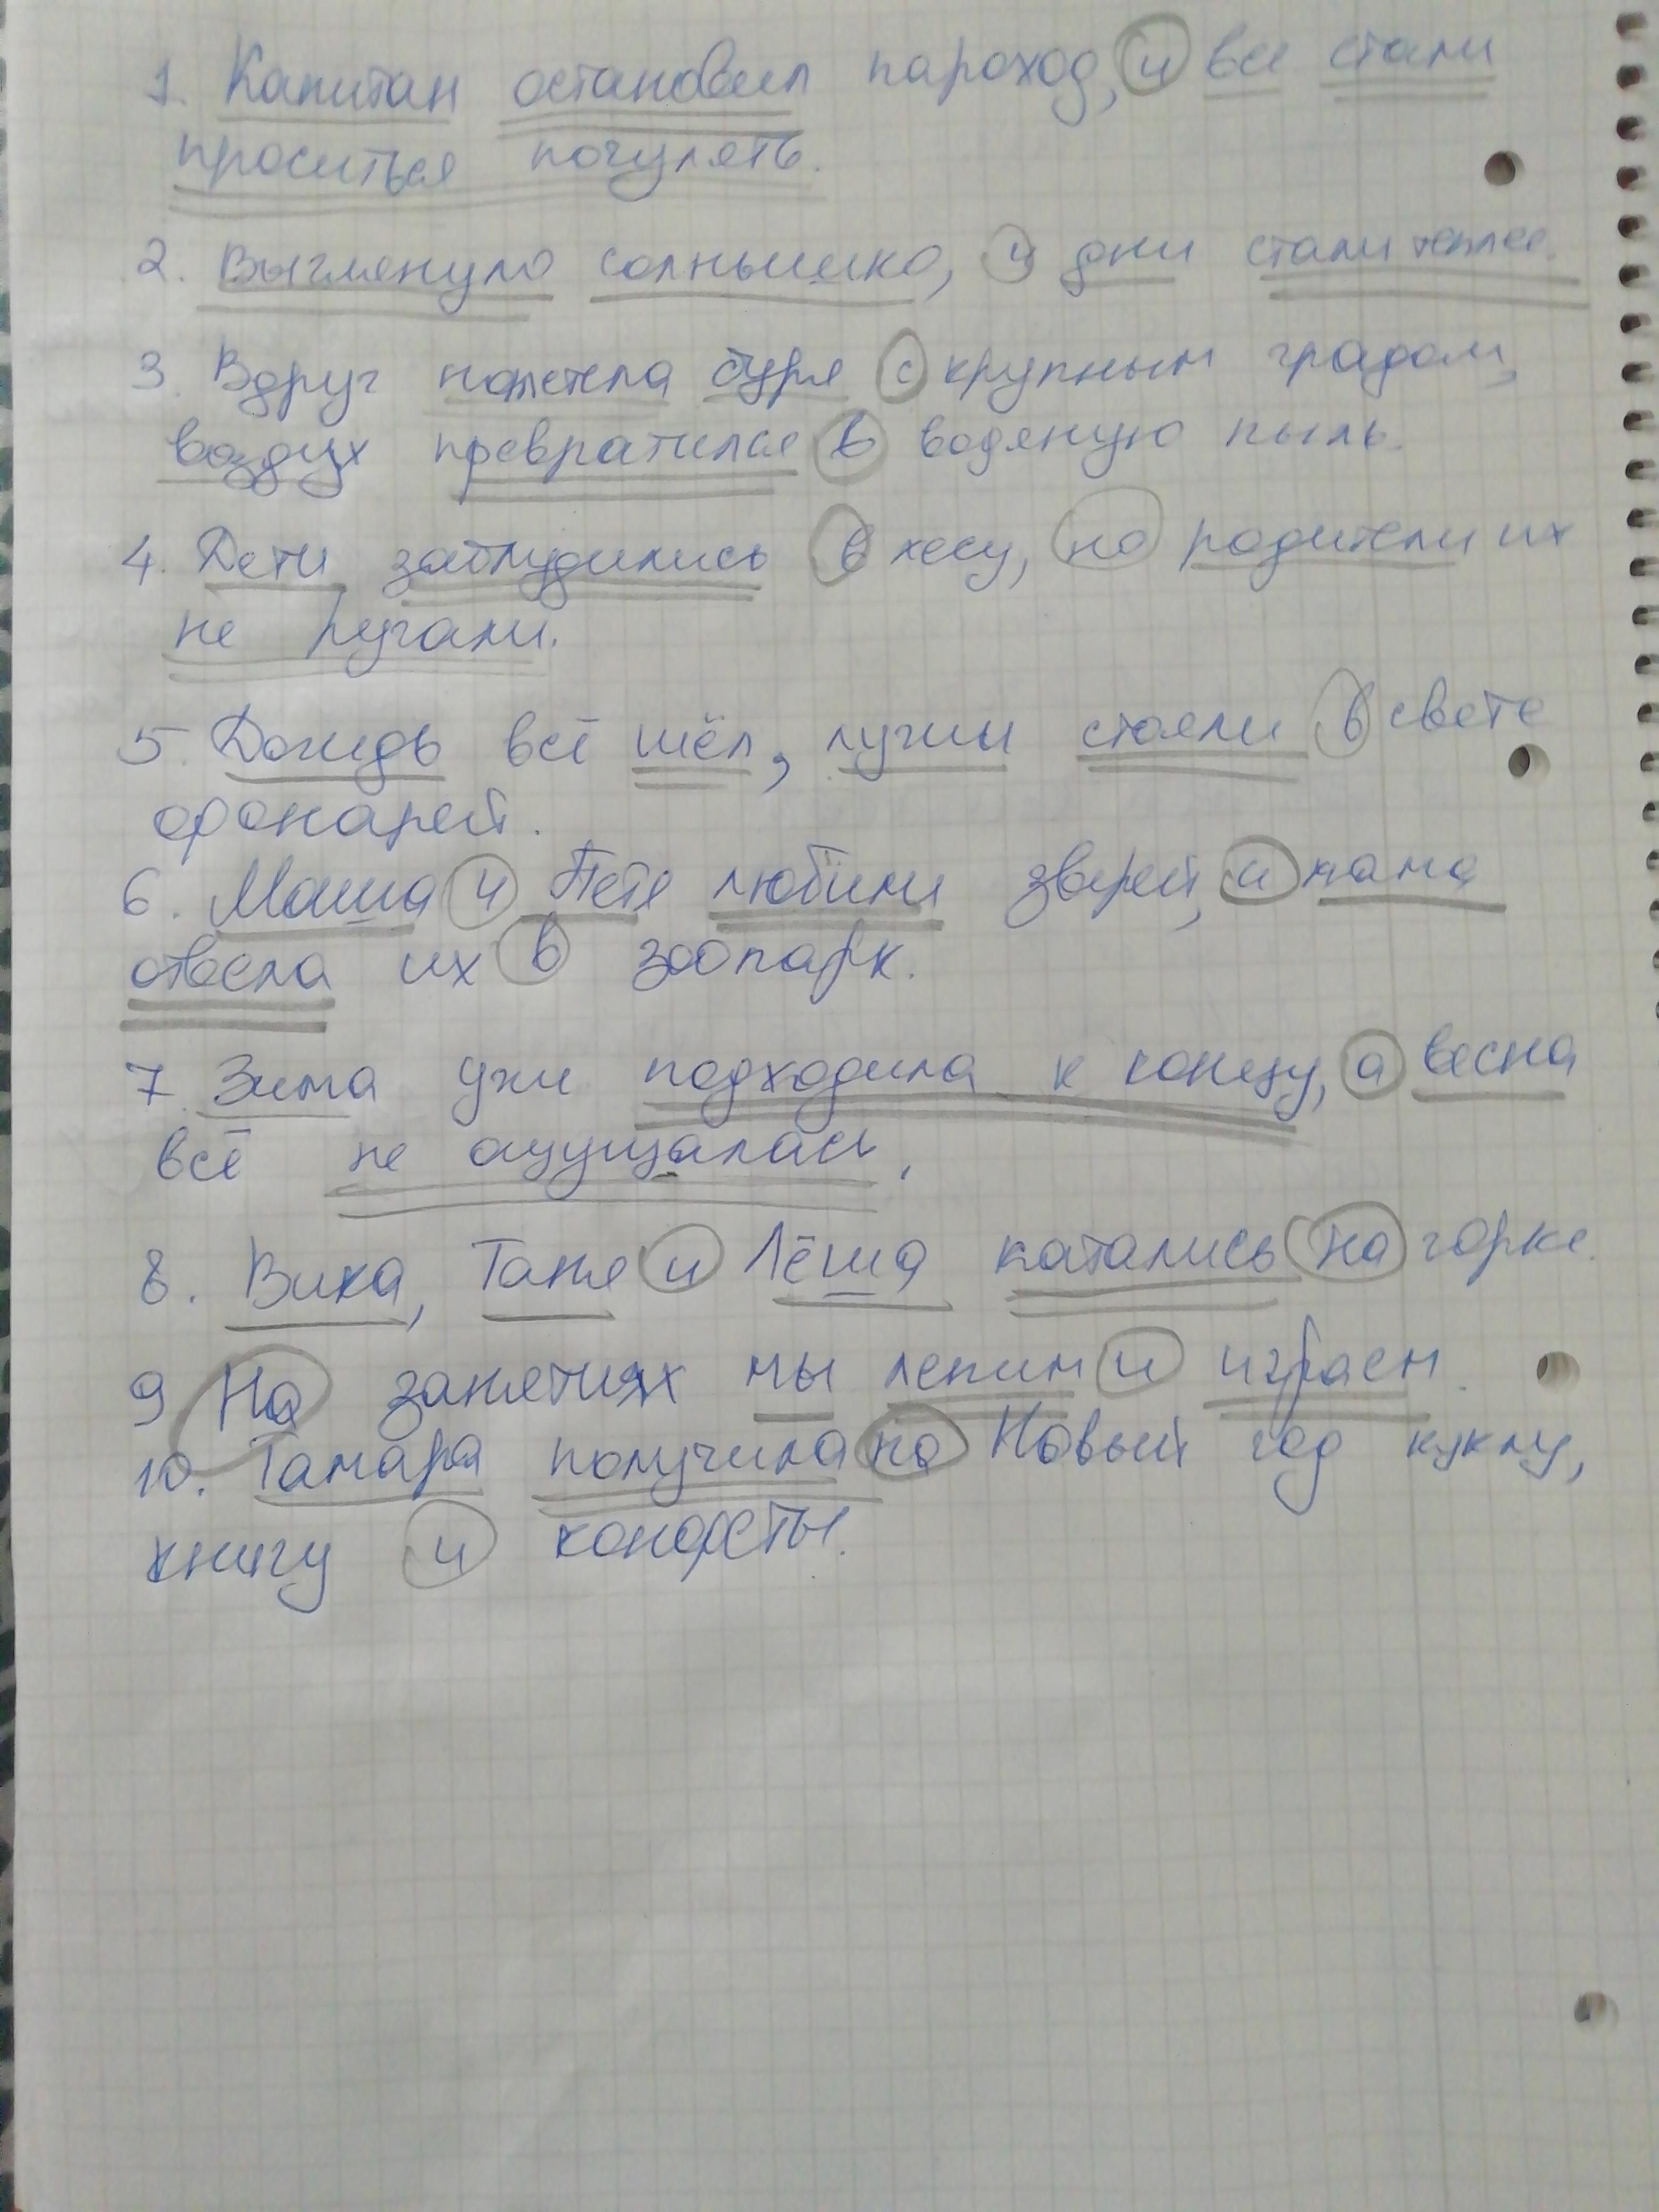 1. Капитан остановил пароход, и все стали
проситься погулять.
2. Выглянуло солнышко, и дни стали теплее.
3. Вдруг налетела буря с крупным градом,
воздух превратился в водяную пыль.
4. Дети заблудились в лесу, но родители их
не ругали.
5. Дождь всё шёл, лужи стояли в свете
фонарей.
6. Маша и Петя любили зверей, и мама
отвела их в зоопарк.
7. Зима уже подходила к концу, а весна
всё не ощущалась.
8. Вика, Таня и Лёша катались на горке.
9 На занятиях мы лепим и играем.
10. Тамара получила на Новый год куклу,
книгу и конфеты.